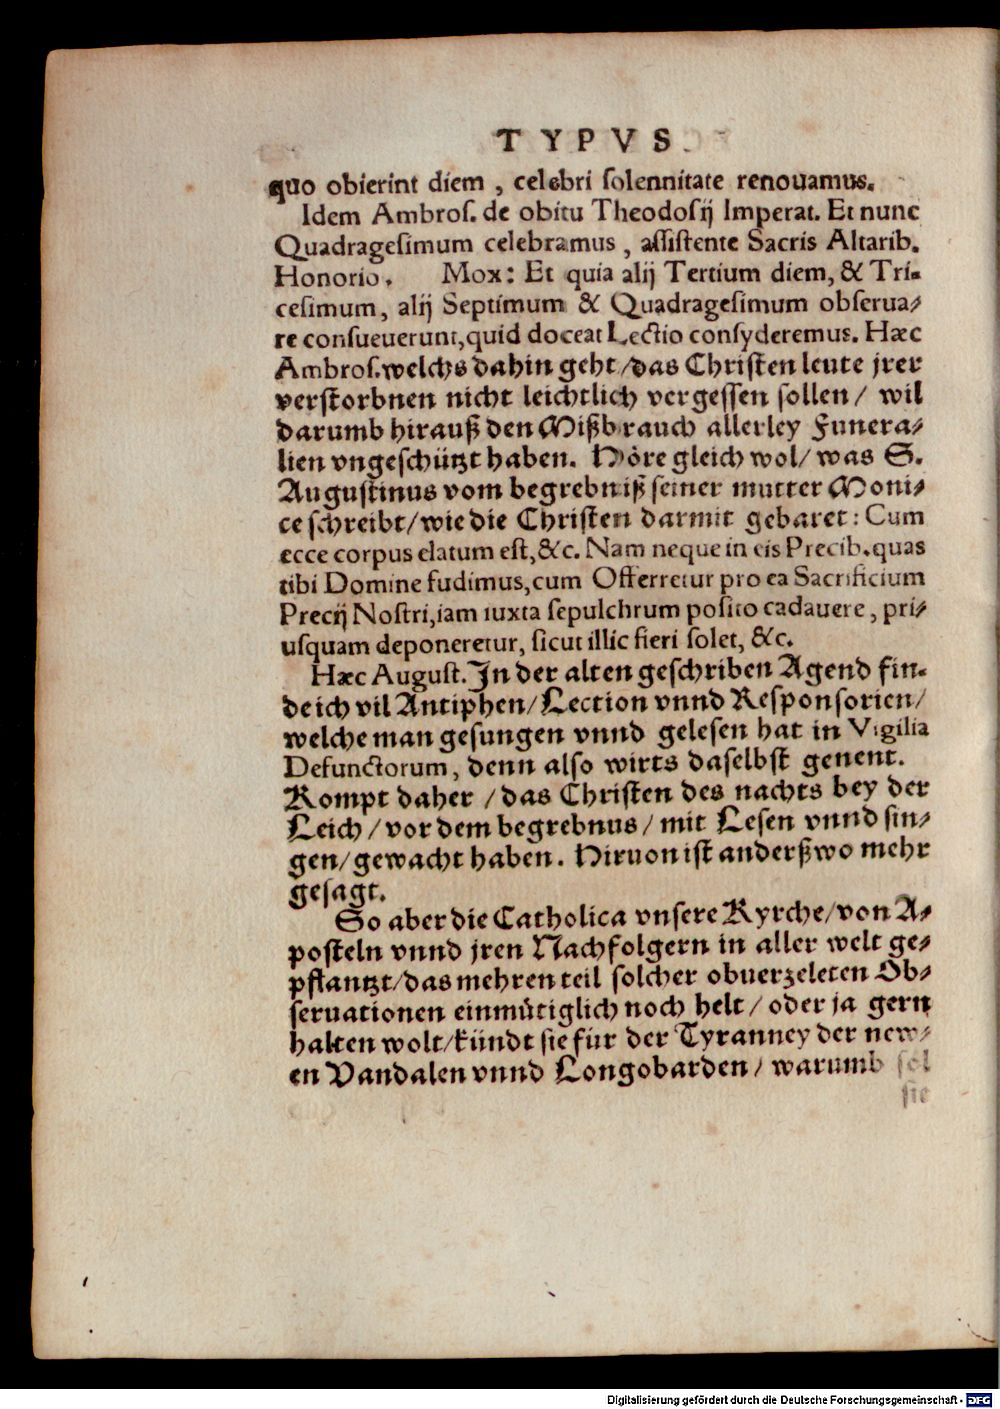 TYPVS
quo obierint diem, celebri solennitate renouamus.
Idem Ambros. de obitu Theodosij Imperat. Et nunc
Quadragesimum celebramus, assistente Sacris Altarib.
Honorio. Mox: Et quia alij Tertium diem, & Tri-
cesimum, alij Septimum & Quadragesimum obserua-
re consueuerunt, quid doceat Lectio consyderemus. Hæc
Ambros. welchs dahin geht/das Christen leute jrer
verstorbnen nicht leichtlich vergessen sollen/ wil
darumb hirauß den Mißbrauch allerley Funera-
lien vngeschützt haben. Höre gleich wol/ was S.
Augustinus vom begrebniß seiner mutter Moni-
ce schreibt/wie die Christen darmit gebaret: Cum
ecce corpus elatum est, &c. Nam neque in eis Precib. quas
tibi Domine fudimus, cum Offerretur pro ea Sacrificium
Precij Nostri, iam iuxta sepulchrum posito cadauere, pri-
usquam deponeretur, sicut illic fieri solet, &c.
Hæc August. In der alten geschriben Agend fin-
de ich vil Antiphen/Lection vnnd Responsorien/
welche man gesungen vnnd gelesen hat in Vigilia
Defunctorum, denn also wirts daselbst genent.
Kompt daher /das Christen des nachts bey der
Leich /vor dem begrebnus/ mit Lesen vnnd sin-
gen/gewacht haben. Hiruon ist anderßwo mehr
gesagt.
So aber die Catholica vnsere Kyrche/von A-
posteln vnnd jren Nachfolgern in aller welt ge-
pflantzt/das mehren teil solcher obuerzeleten Ob-
seruationen einmütiglich noch helt/ oder ja gern
halten wolt/kündt sie für der Tyranney der new-
en Vandalen vnnd Longobarden/ warumb sol
sie
Digitalisierung gefördert durch die Deutsche Forschungsgemeinschaft - DFG